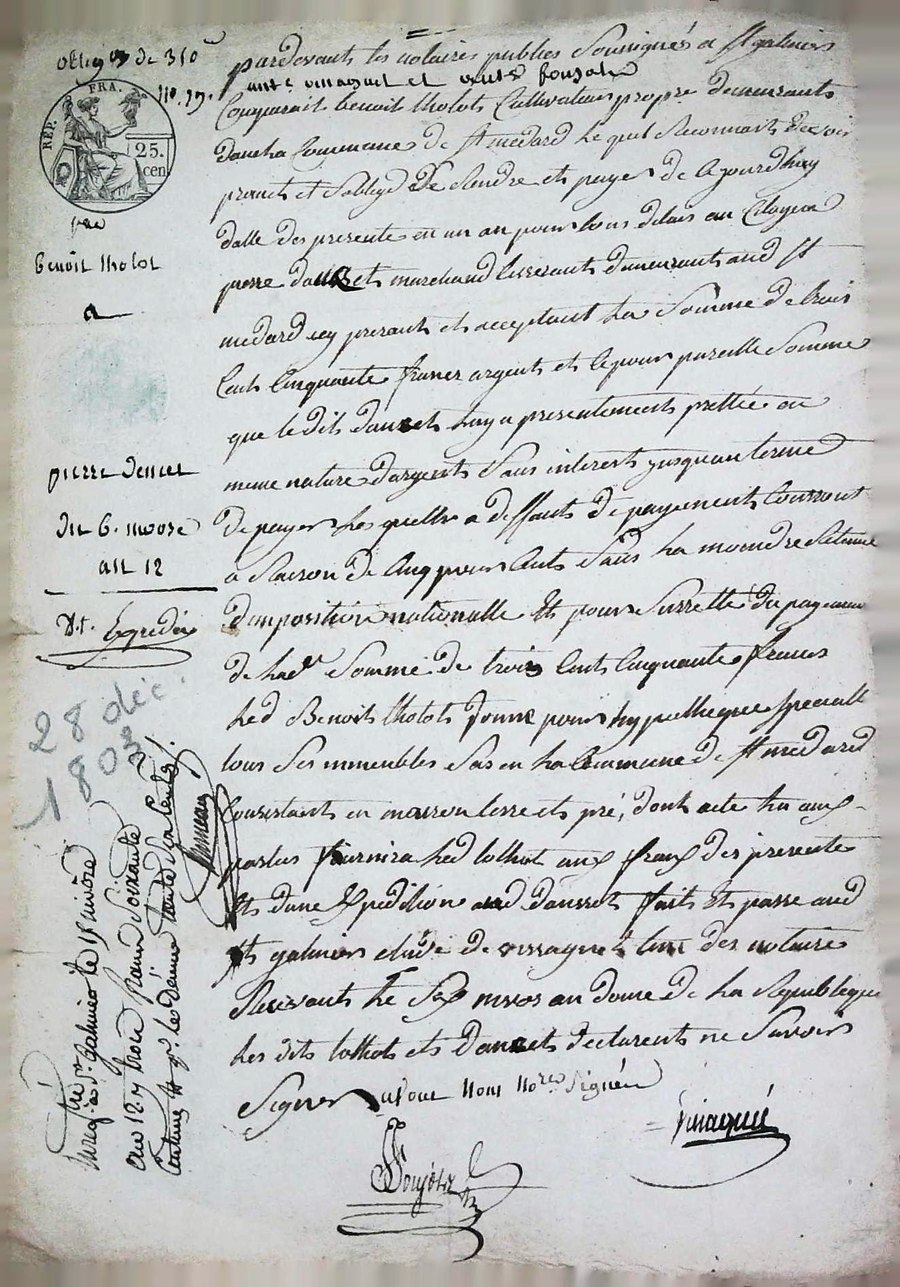 oblig°n de 350
RÉP. FRA.
25.
cen.
n°. 19.
par
Benoit tholot
a
pierre dencet
du 6. nivose
an 12
Expedié
28 déc.
1803
pardevants les notaires publics Soussignés a St galmier
Comparait benoit tholots Cultivateur propre. demeurants
dans ha Commune de St medard he quel Reconnait devoir
promet et Soblige De Rendre et payer de Cejourdhuy
datte des presente en un an pour tous delais au Citoyen
pierre danset marchand tisserants demeurants aud St
medard icy present et acceptant ha Somme de trois
Cent Cinquante francs argent et Ce pour pareille Somme
que le dit danset huy a presentement prettée en
meme nature Dargent Sans interest jusquau terme
De payer hes quelle a deffauts de payement Courront
a Raison de Cinq pour Cent Sans ha moindre Retenue
Dimposition nationalle Et pour Surrette du payement
de had. Somme de trois Cent Cinquante francs
hed Benoit tholots donne pour hypotheque Speciall
tous Ses immeubles Sis en ha Commune de St medard
Consistant en maison terre et pré, dont acte ha aux
partis fournira hed tholhot aux fraix des presente
Et dune Expedition aud dansset fait Et passé aud
St galmier etude de vinagué lun des notaire
he Six nivos an Douze De ha Republique
hes dits tolhot et Danset declarent ne Savoir
Signer nous no.res Signée
Vinagué
Enreg.tré a St. Galmier le 15 nivôse
an 12. Reçu Soixante